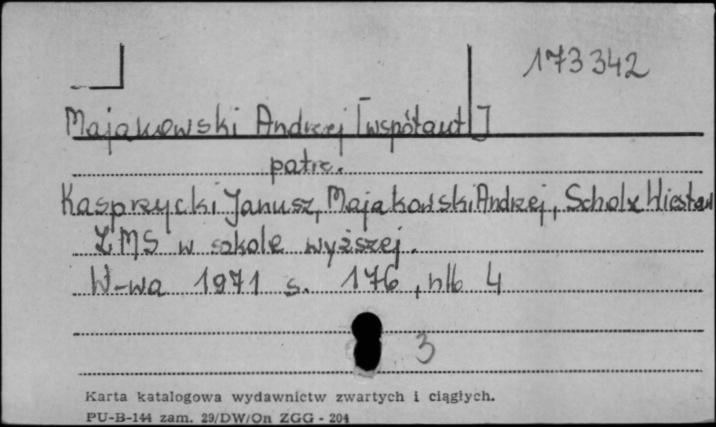 173342
Majakowski Andrzej [współaut]
patrz.
Kasprzycki Janusz, Majakowski Andrzej, Scholz Wiesław
ZMS w szkole wyższej.
W-wa 1971 s. 176, nlb 4
3
Karta katalogowa wydawnictw zwartych i ciągłych.
PU-B-144 zam. 29/DW/On ZGG - 204